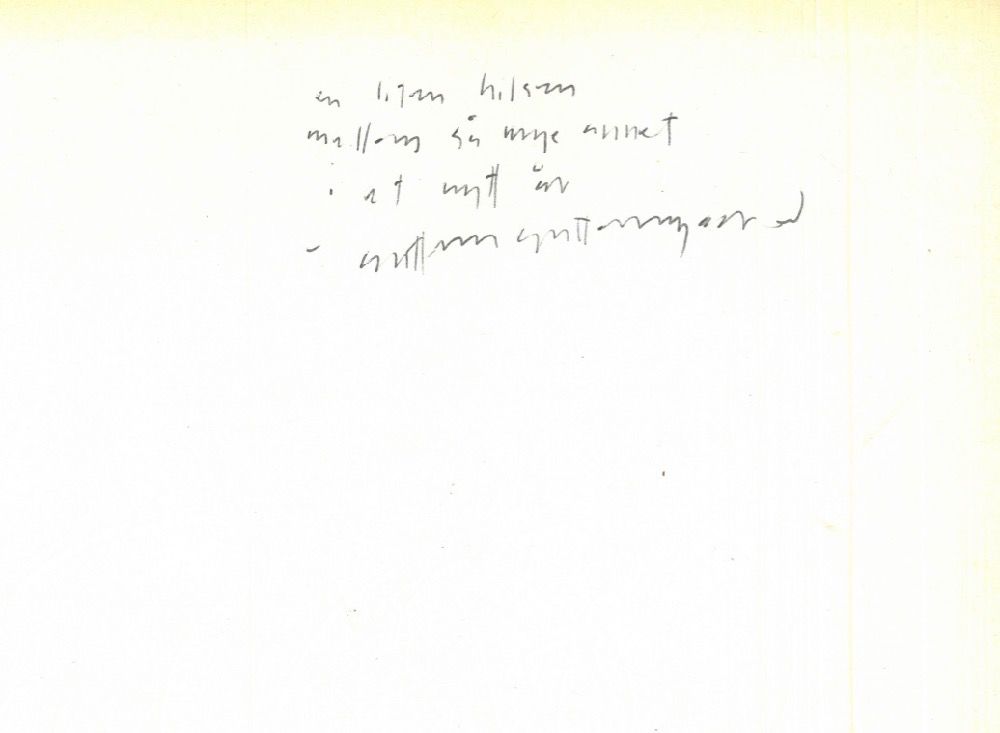 en liten hilsen
mellom så mye annet
i et nytt år
i